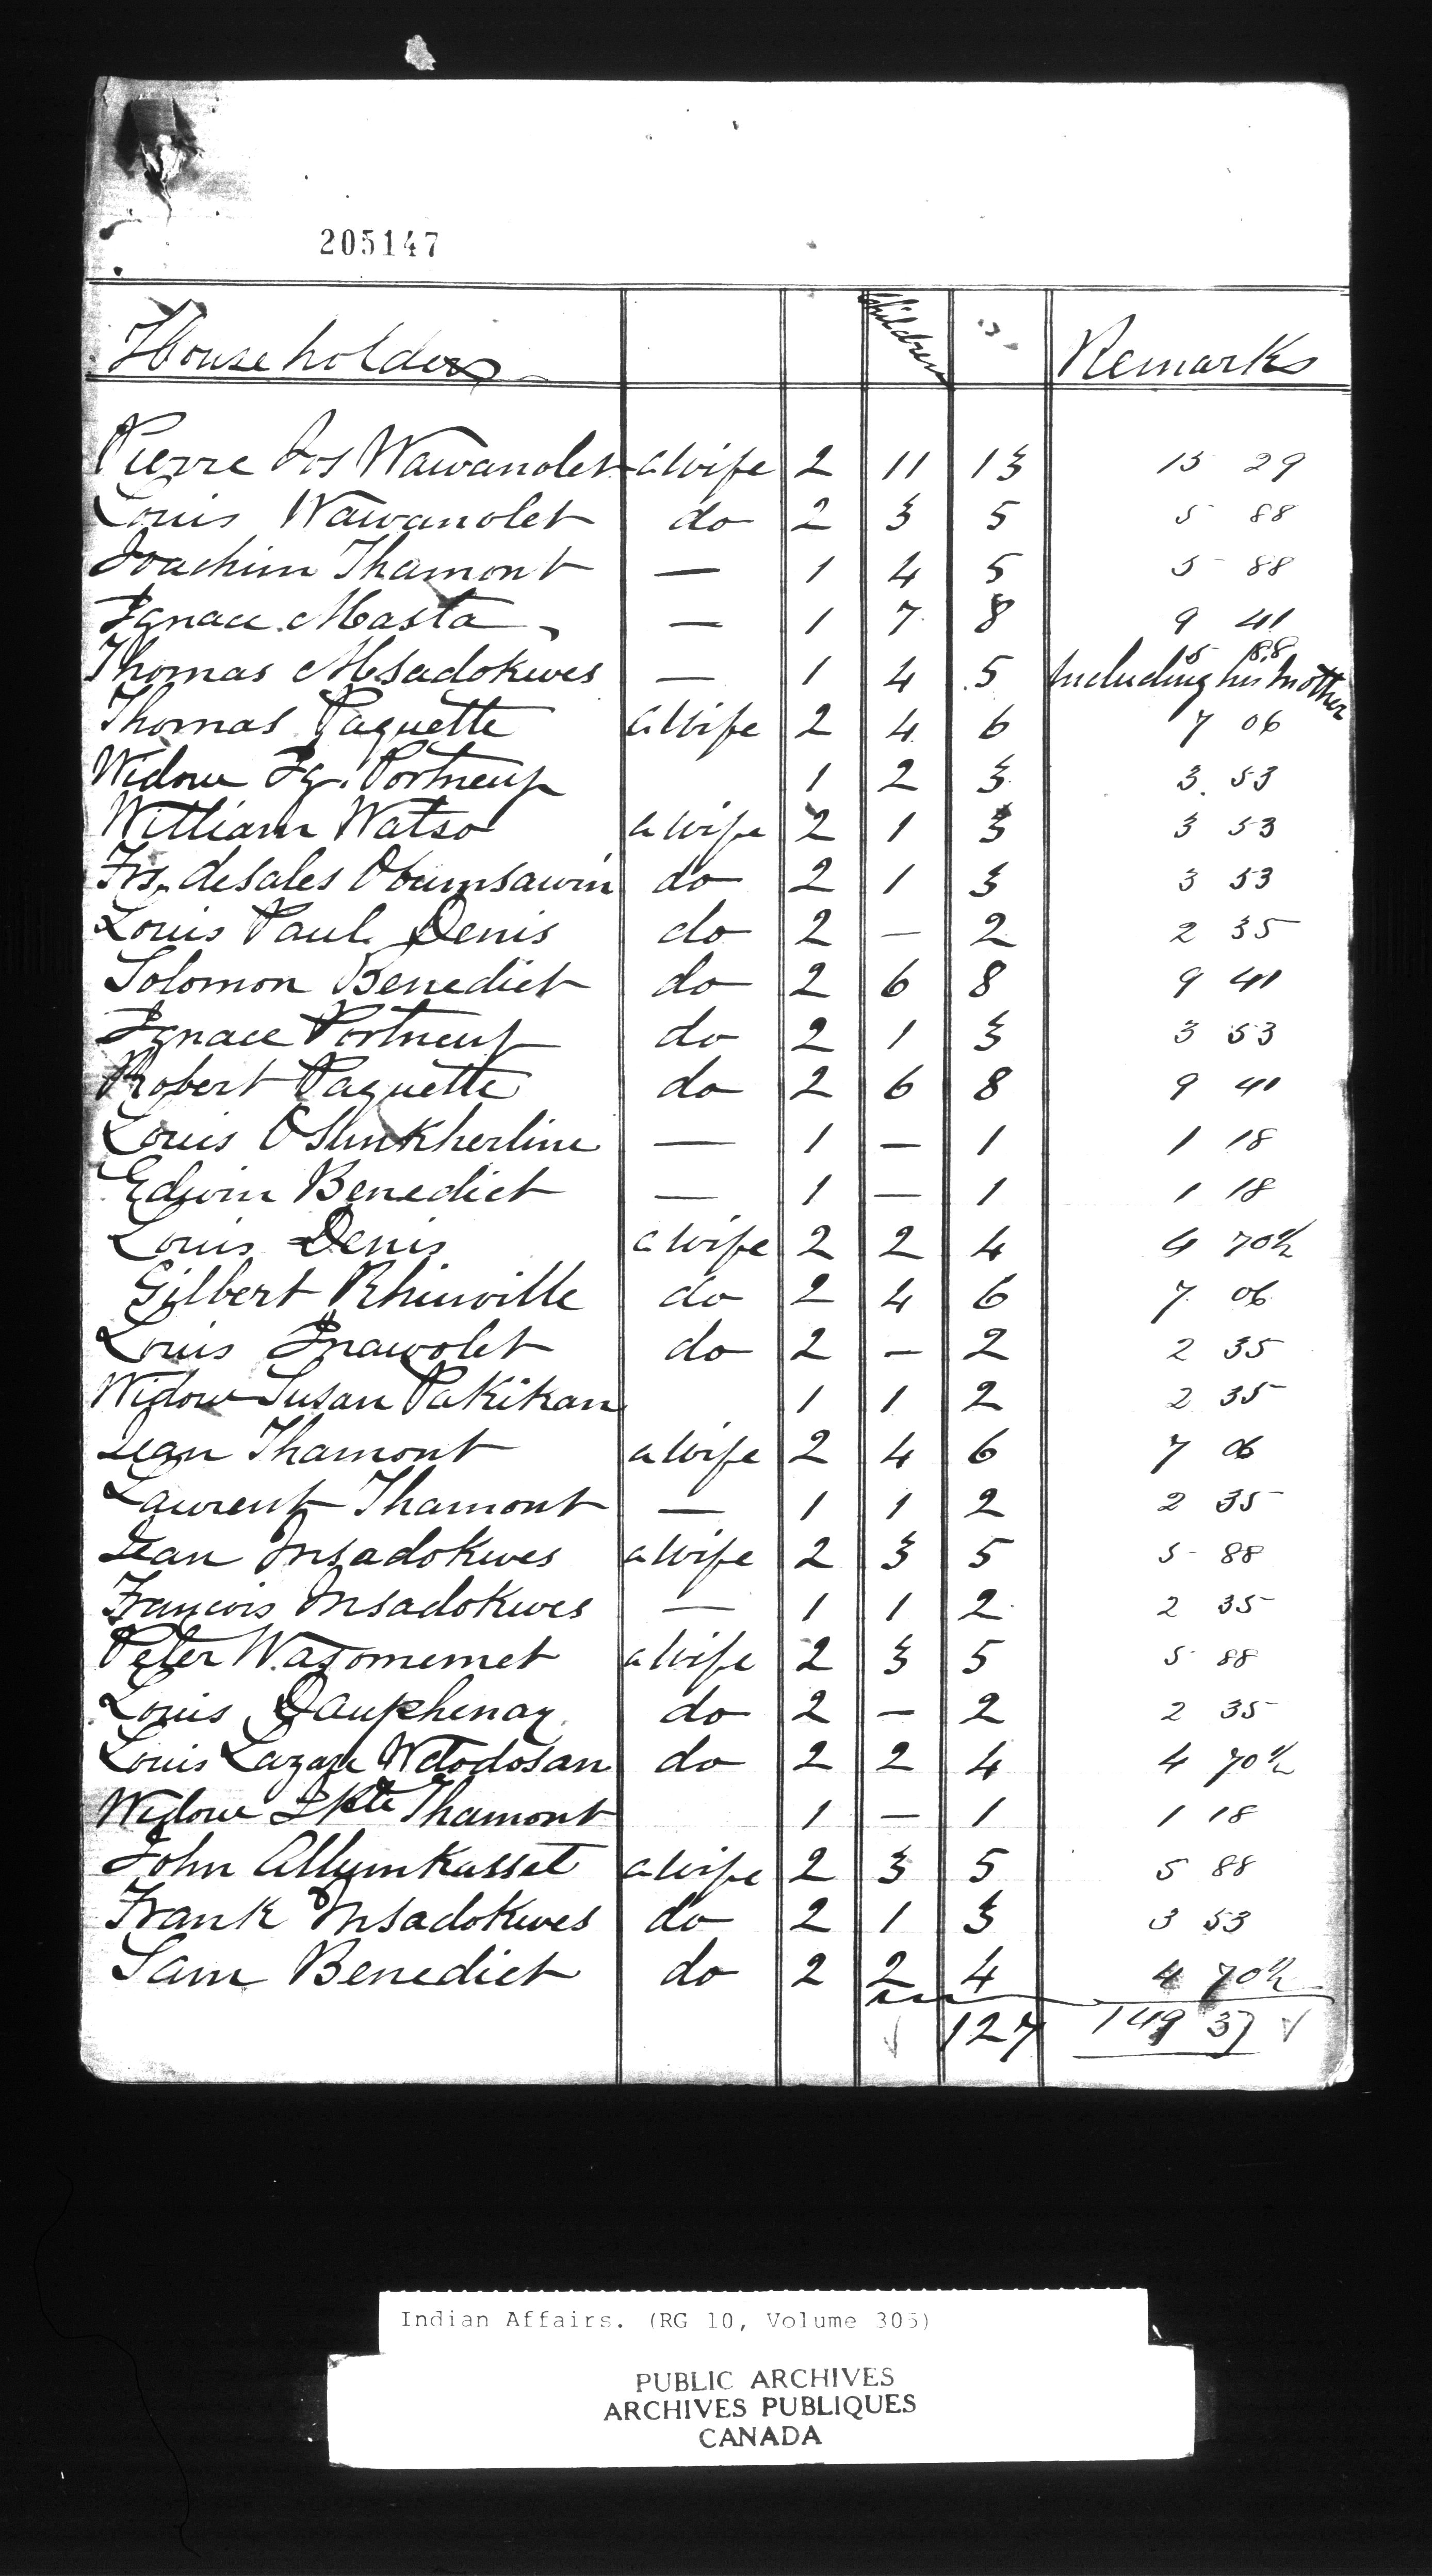 205147
Householders children Remarks
Pierre Jos Wawanolet a Wife 2 11 13 15 29
Louis Wawanolet do 2 3 5 5 88
Joachim Thamont — 1 4 5 5 88
Ignace Masta — 1 7 8 9 41
Thomas Msadokwes — 1 4 5 5 88 Including his Mother
Thomas Paquette a Wife 2 4 6 7 06
Widow Ig. Portneuf 1 2 3 3 53
William Watso a Wife 2 1 3 3 53
Frs. desales Obumsawin do 2 1 3 3 53
Louis Paul Denis do 2 — 2 2 35
Solomon Benedict do 2 6 8 9 41
Ignace Portneuf do 2 1 3 3 53
Robert Paquette do 2 6 8 9 41
Louis Oslunkherline — 1 — 1 1 18
Edwin Benedict — 1 — 1 1 18
Louis Denis a Wife 2 2 4 4 70½
Gilbert Rhinville do 2 4 6 7 06
Louis Inawolet do 2 — 2 2 35
Widow Susan Pakikan 1 1 2 2 35
Jean Thamont a Wife 2 4 6 7 06
Laurent Thamont — 1 1 2 2 35
Jean Msadokwes a Wife 2 3 5 5 88
Francois Msadokwes — 1 1 2 2 35
Peter Wasomemet a Wife 2 3 5 5 88
Louis Dauphenay do 2 — 2 2 35
Louis Lazare Wdodosan do 2 2 4 4 70½
Widow Bte Thamont 1 — 1 1 18
John Allumkasset a Wife 2 3 5 5 88
Frank Msadokwes do 2 1 3 3 53
Sam Benedict do 2 2 4 4 70½
127 149 37
Indian Affairs. (RG 10, Volume 305)
PUBLIC ARCHIVES
ARCHIVES PUBLIQUES
CANADA